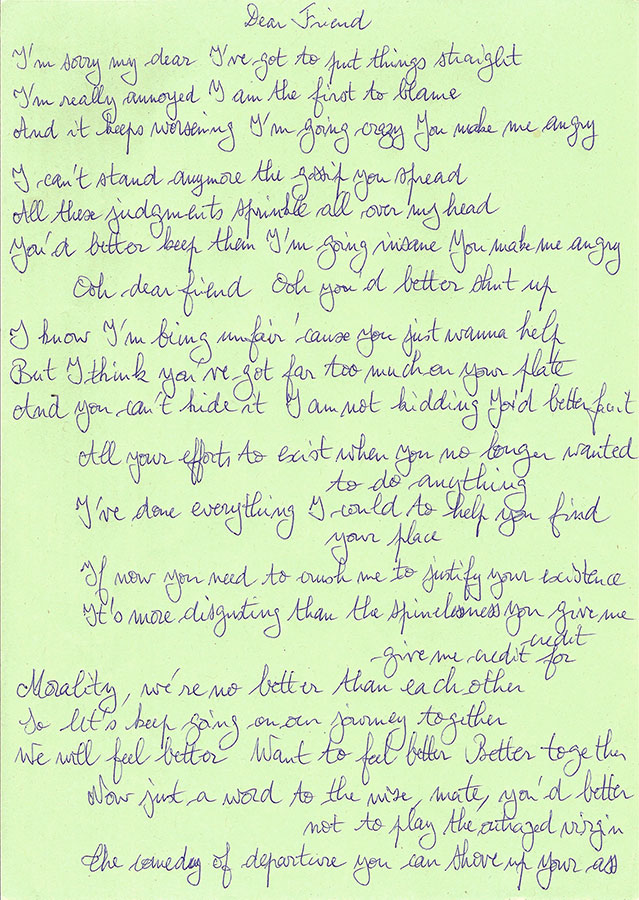 Dear Friend
I'm sorry my dear I've got to put things straight
I'm really annoyed I am the first to blame
And it keeps worsening I'm going crazy You make me angry
I can't stand anymore the gossip you spread
All these judgments sprinkle all over my head
You'd better keep them I'm going insane You make me angry
Ooh dear friend Ooh you'd better shut up
I know I'm being unfair 'cause you just wanna help
But I think you've got far too much on your plate
And you can't hide it I am not kidding You'd better quit
All your efforts to exist when you no longer wanted
to do anything
I've done everything I could to help you find
your place
If now you need to crush me to justify your existence
It's more disgusting than the spinelessness you give me
credit
-give me credit for
Morality, we're no better than each other
So let's keep going on our journey together
We will feel better Want to feel better Better together
Now just a word to the wise, mate, you'd better
not to play the outraged virgin
The comedy of departure you can shove up your ass